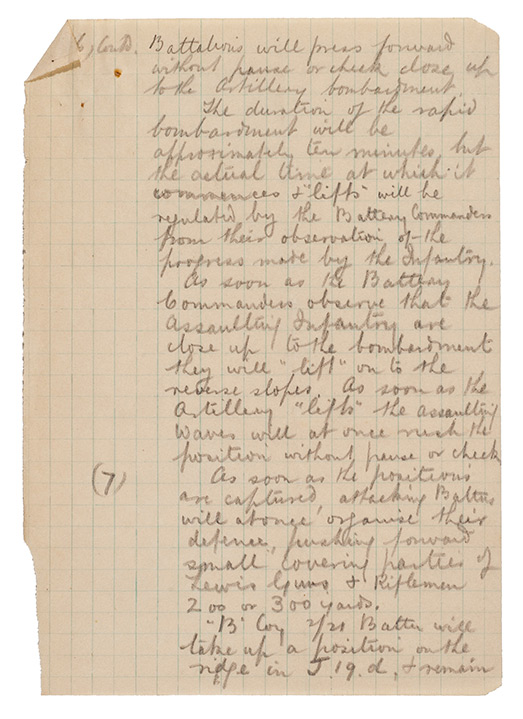 6, Contd. Battalions will press forward
without pause or check close up
to the Artillery bombardment.
The duration of the rapid
bombardment will be
approximately ten minutes, but
the actual time at which it
commences & "lifts" will be
regulated by the Battery Commanders
from their observation of the
progress made by the Infantry.
As soon as the Battery
Commanders observe that the
Assaulting Infantry are
close up to the bombardment
they will "lift" on to the
reverse slopes. As soon as the
Artillery "lifts" the assaulting
waves will at once rush the
position without pause or check
(7) As soon as the positions
are captured, attacking Battns
will at once organise their
defence, pushing forward
small covering parties of
Lewis Guns & Riflemen
200 or 300 yards.
"B" Coy 2/21 Battn will
take up a position on the
ridge in J.19.d, & remain